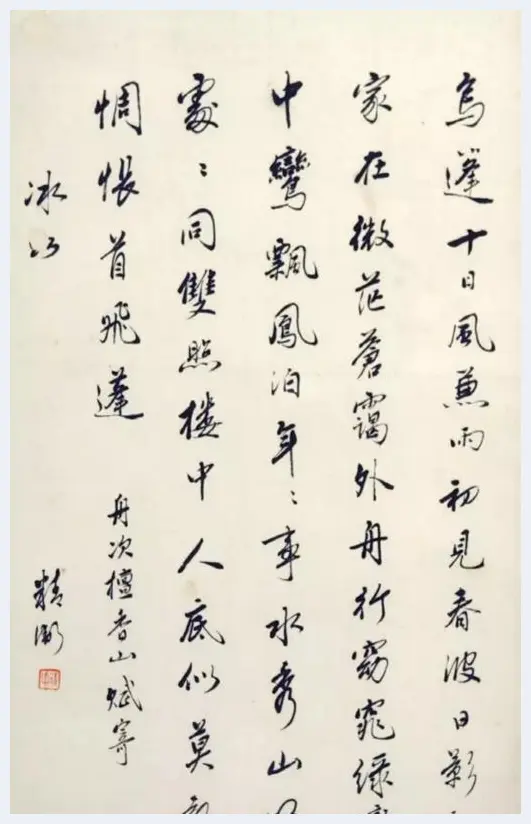 烏篷十日風兼雨初見春波日影
家在微茫蒼靄外舟行窈窕綠
中鸞飄鳳泊年〻事水秀山
處〻同雙照樓中人底似莫
惆悵首飛蓬
舟次檀香山賦寄
冰如
精衛